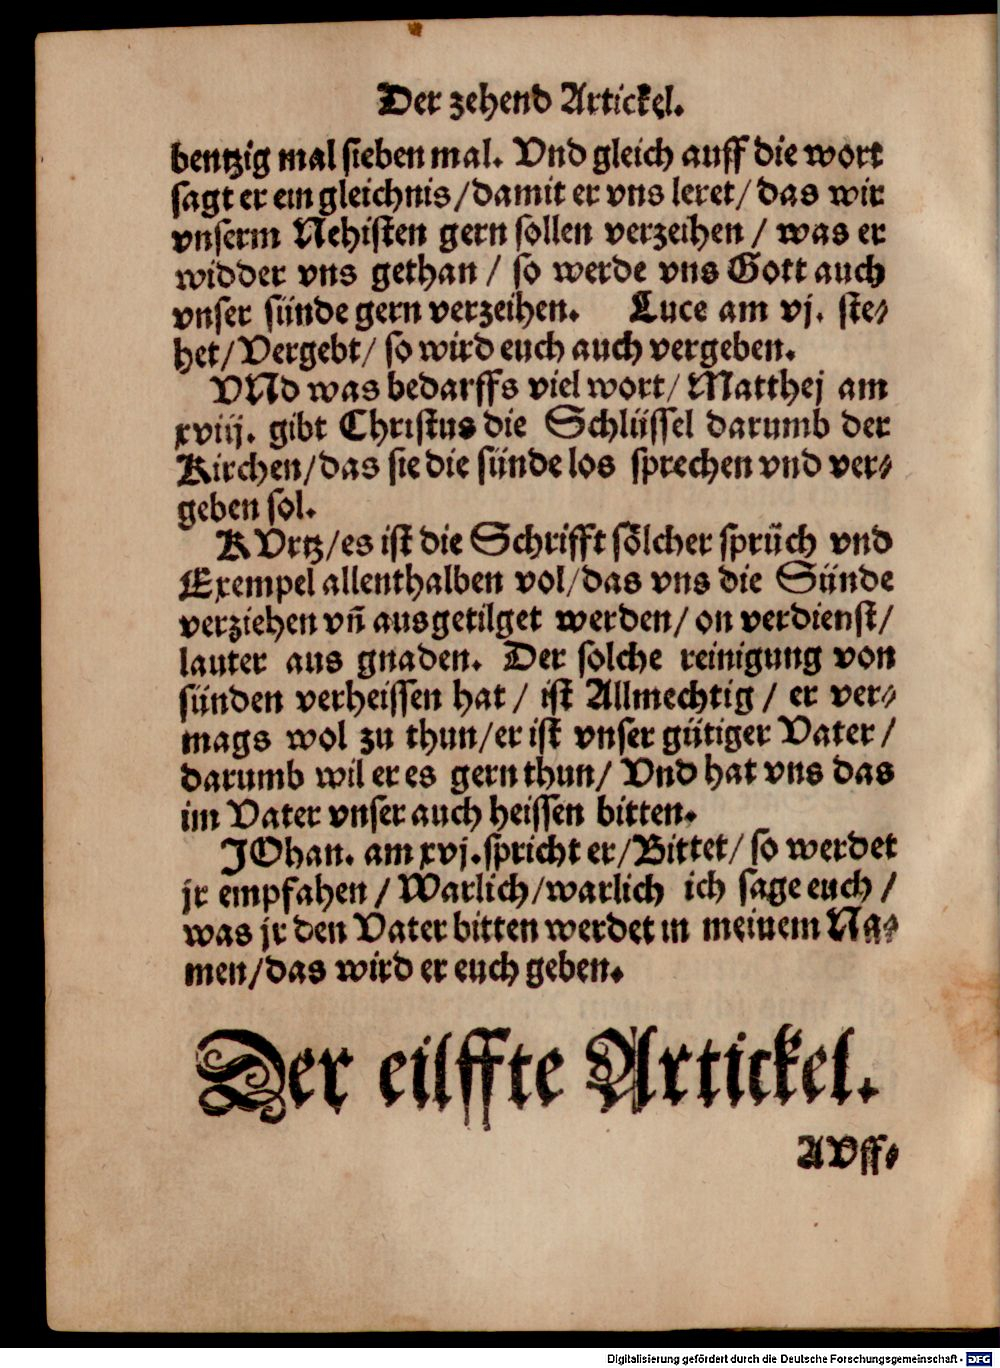 Der zehend Artickel.
bentzig mal sieben mal. Vnd gleich auff die wort
sagt er ein gleichnis/damit er vns leret/ das wir
vnserm Nehisten gern sollen verzeihen / was er
widder vns gethan / so werde vns Gott auch
vnser sünde gern verzeihen. Luce am vj. ste⸗
het/Vergebt/ so wird euch auch vergeben.
VNd was bedarffs viel wort/ Matthej am
xviij. gibt Christus die Schlüssel darumb der
Kirchen/das sie die sünde los sprechen vnd ver⸗
geben sol.
KVrtz/es ist die Schrifft sölcher sprüch vnd
Exempel allenthalben vol/das vns die Sünde
verziehen vn̄ ausgetilget werden/ on verdienst/
lauter aus gnaden. Der solche reinigung von
sünden verheissen hat / ist Allmechtig / er ver⸗
mags wol zu thun/er ist vnser gütiger Vater /
darumb wil er es gern thun/ Vnd hat vns das
im Vater vnser auch heissen bitten.
JOhan. am xvj.spricht er/Bittet/ so werdet
jr empfahen / Warlich/warlich ich sage euch /
was jr den Vater bitten werdet in meinem Na⸗
men/das wird er euch geben.
Der eilffte Artickel.
AVff⸗
Digitalisierung gefördert durch die Deutsche Forschungsgemeinschaft - DFG